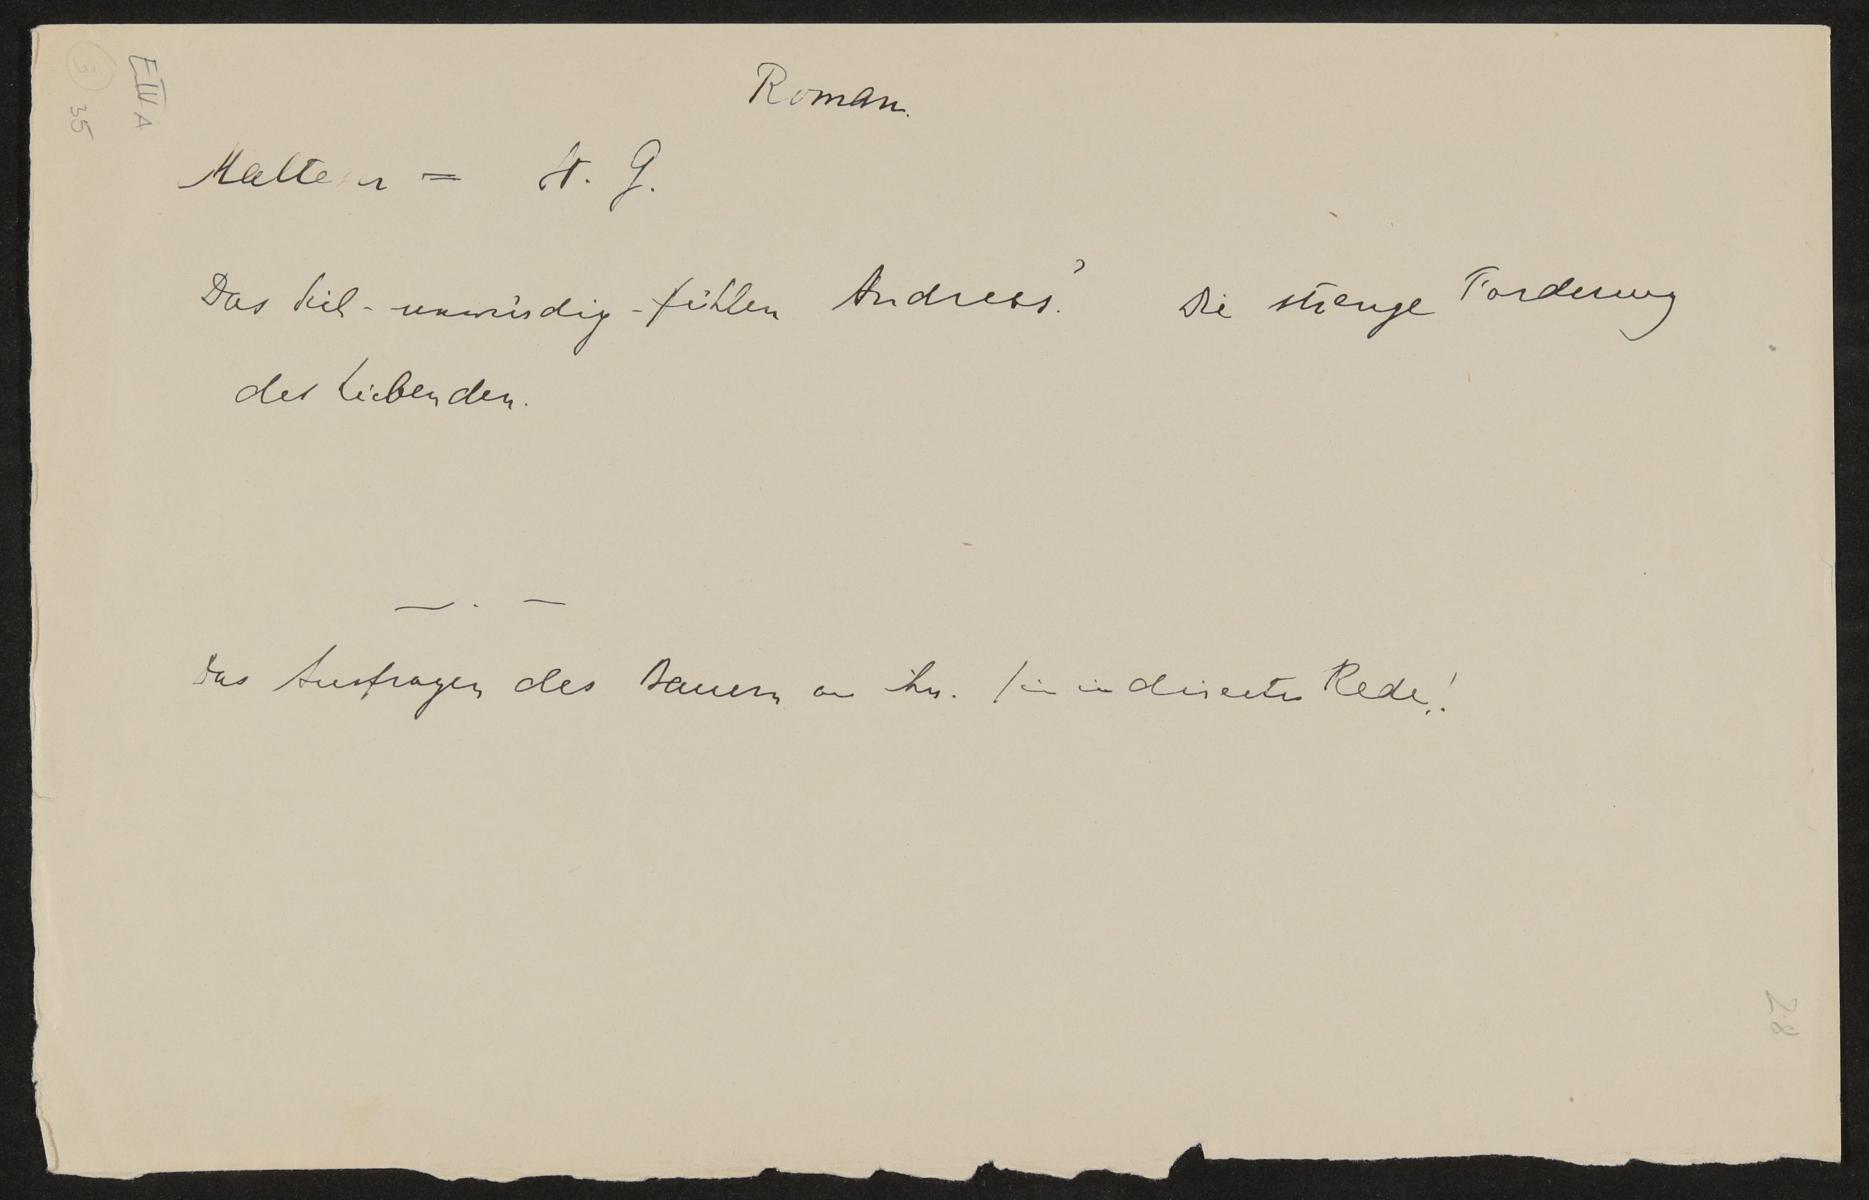 Roman.
Malteser = St. G.
Das sich-unwürdig-fühlen Andreas'. Die strenge Forderung
des Liebenden.
Das Ausfragen des Bauern an ihn. / in indirecter Rede!
E IV A
3
35
28